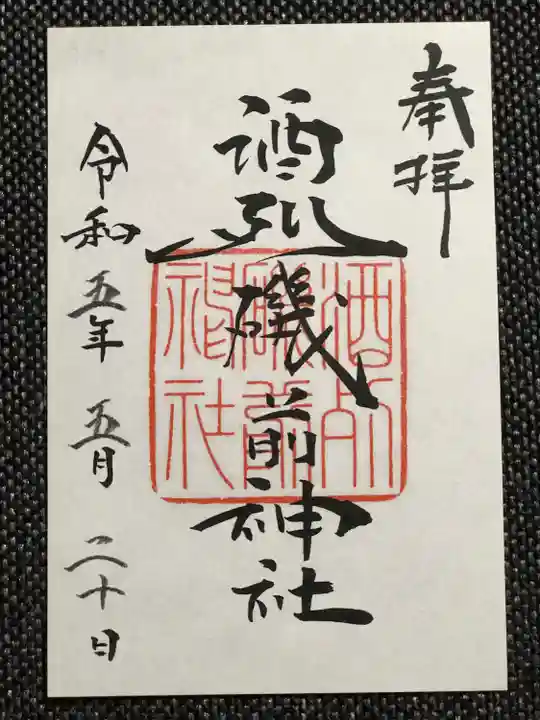 奉拝
酒列磯前神社
令和五年五月二十日
酒列
磯前
神社